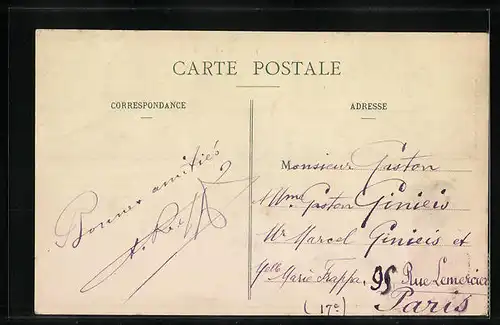 CARTE POSTALE
CORRESPONDANCE
ADRESSE
Bonnes amitiés
Monsieur Gaston
Mme Gaston Ginieis
Mr Marcel Ginieis et
Melle Marie Frappa. 95 Rue Lemercier
(17e) Paris